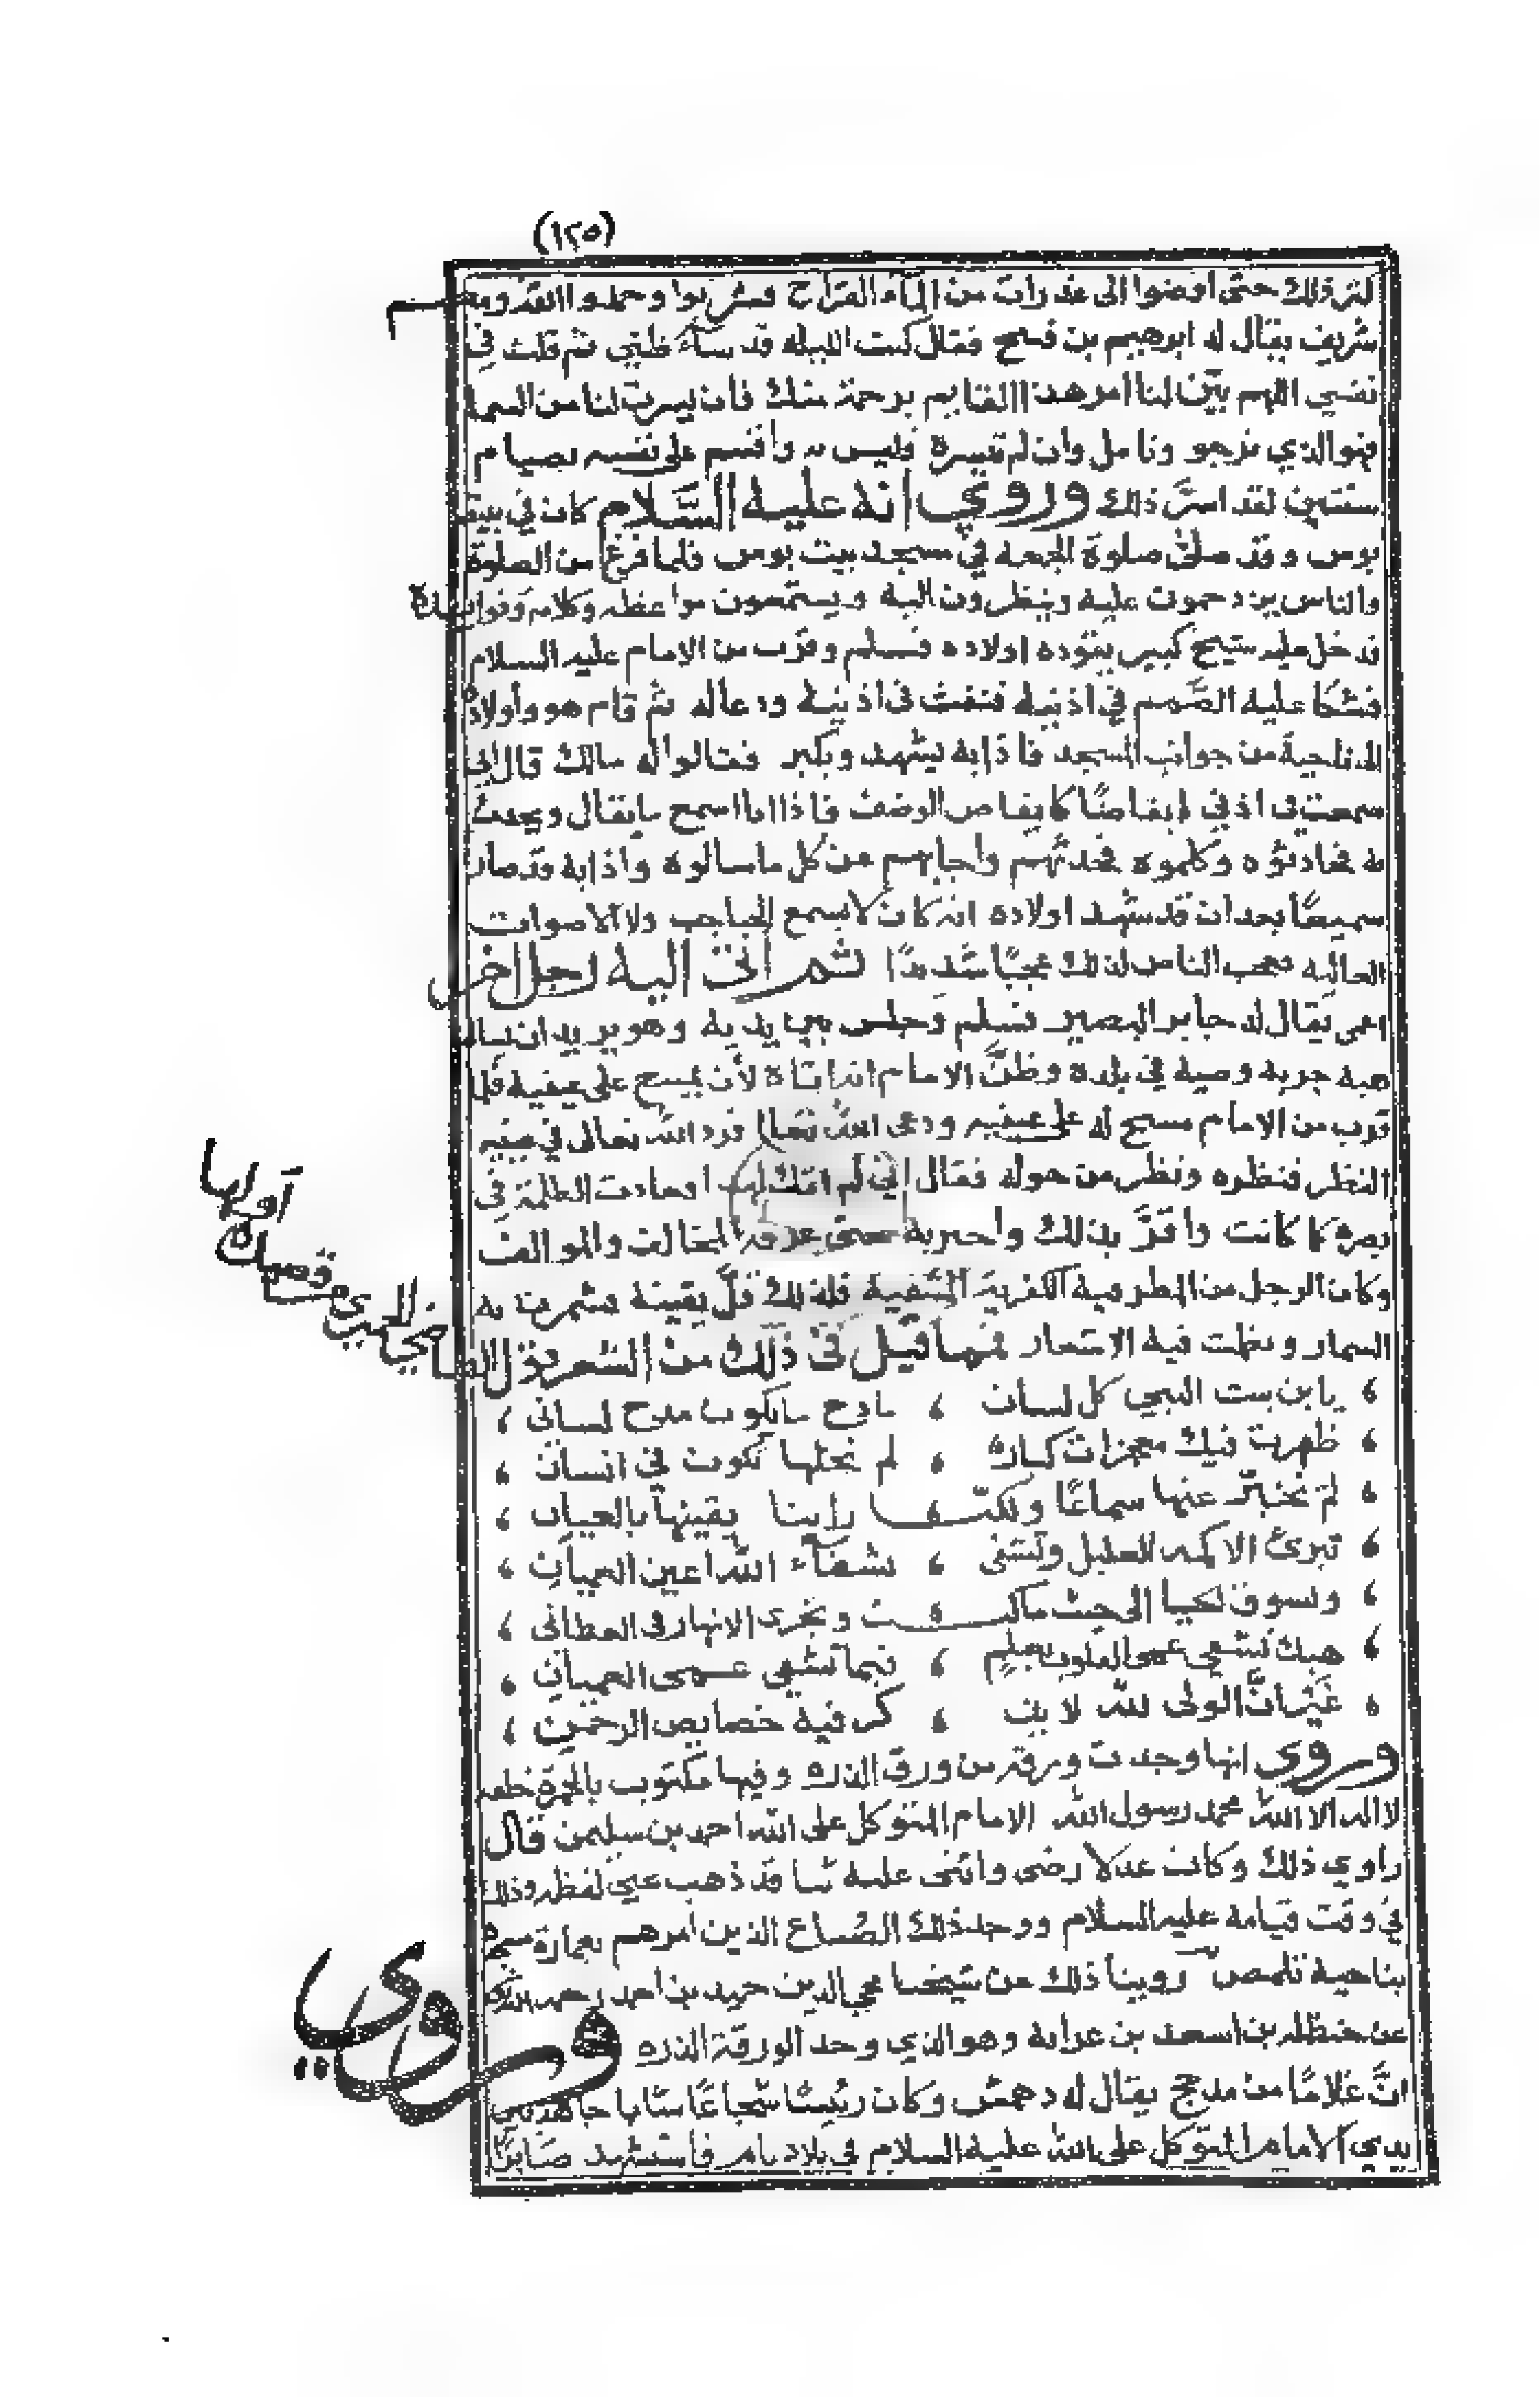 (١٢٥)
لترذلك حتى افضوا الى غدرات من المآء القراح فشربوا وحملوا الله ومعهم
شريف يقال له ابرهيم بن فسح فقال كنت الليله قد سآء ظني ثم قلت في
نفسي اللهم بيّن لنا امر هذا القايم برحمة منك فان يسرت لنا من السما
فهو الذي نرجو ونامل وان لم تيسره فليس به واقسم على نفسه بصيام
سنتين لقد اسرّ ذلك وروي انه عليه السّلام كان في بيت
بوس وقد صلى صلوة الجمعه في مسجد بيت بوس فلما فرغ من الصلوة
والناس يزدحمون عليه وينظرون اليه ويستمعون مواعظه وكلامه وفوايده
قدخل عليه شيخ كبير يقوده اولاده فسلم وقرب من الامام عليه السلام
فشكا عليه الصّمم في اذنيه فنفث في اذنيه ودعا له ثم قام هو واولاده
الى ناحية من جوانب المسجد فاذا به يشهد ويكبر فقالوا له مالك قال اني
سمعت في اذني انقاضًا كانقاض الرضف فاذا انا اسمع ما يقال ويحدث
به فحادثوه وكلموه فحدثهم واجابهم عن كل ما سالوه واذا به قد صار
سميعًا بعد ان قد شهد اولاده انه كان لا يسمع الجاجب ولا الاصوات
العاليه فعجب الناس لذلك عجبًا شديدًا ثم اتى اليه رجل اخر
اعمى يقال له جابر البصير فسلم وجلس بين يديه وهو يريد ان يساله
هبة جربه وصية في بلده وظنّ الامام انه اتاه لأن يمسح على عينيه فلما
قرب من الامام مسح له على عينيه ودعى الله تعالى فرد الله تعالى في عينيه
النظر فنظره ونظر من حوله فقال اني لم اتك لهذا فعادت الظلمة في
بصره كما كانت واقرّ بذلك واخبر به حتى عرفه المخالف والموالف
وكان الرجل من المطرفية الكفرية الشقية فلذلك قلّ يقينه فشمرت به
السمار ونظمت فيه الاشعار فمما قيل في ذلك من الشعر يقول القاضي
محمد الحميري وقصيدة اولها
، يا بن بنت النبي كل لسان ، مادح ما يكون مدح لساني ،
، ظهرت فيك معجزات كبار ، لم نخلها تكون في انسان ،
، لم نخبّر عنها سماعًا ولكنّا راينا يقينها بالعيان ،
، تبرئ الاكمه العليل وتشفي ، بشفآء الله اعين العميان ،
، وتسوق الحيا الى حيث ما كنت وتجري الانهار في الغطاني ،
، هبك تشفي عمى القلوب بعلم ، فبما تشفي عمى العميان ،
، غير انّ الولي لله لا بد ، كر فيه خصايص الرحمن ،
وروي انها وجدت ورقة من ورق الذره وفيها مكتوب بالحمرة خلقه
لا اله الا الله محمد رسول الله الامام المتوكل على الله احمد بن سليمن قال
راوي ذلك وكان عدلا رضى واثنى عليه بما قد ذهب عني لفظه وذلك
في وقت قيامه عليه السلام ووجد ذلك الصّناع الذين امرهم بعمارة مسجد
بناحية تلمص روينا ذلك عن شيخنا محيي الدين حميد بن احمد رحمه الله
عن حنظله بن اسعد بن عرابه وهو الذي وجد الورقة الذره وروي
انّ غلامًا من مذحج يقال له دهمش وكان رئيسًا شجاعًا شابا جاهد بين
يدي الامام المتوكل على الله عليه السلام في بلاد يام فاستشهد صابرًا